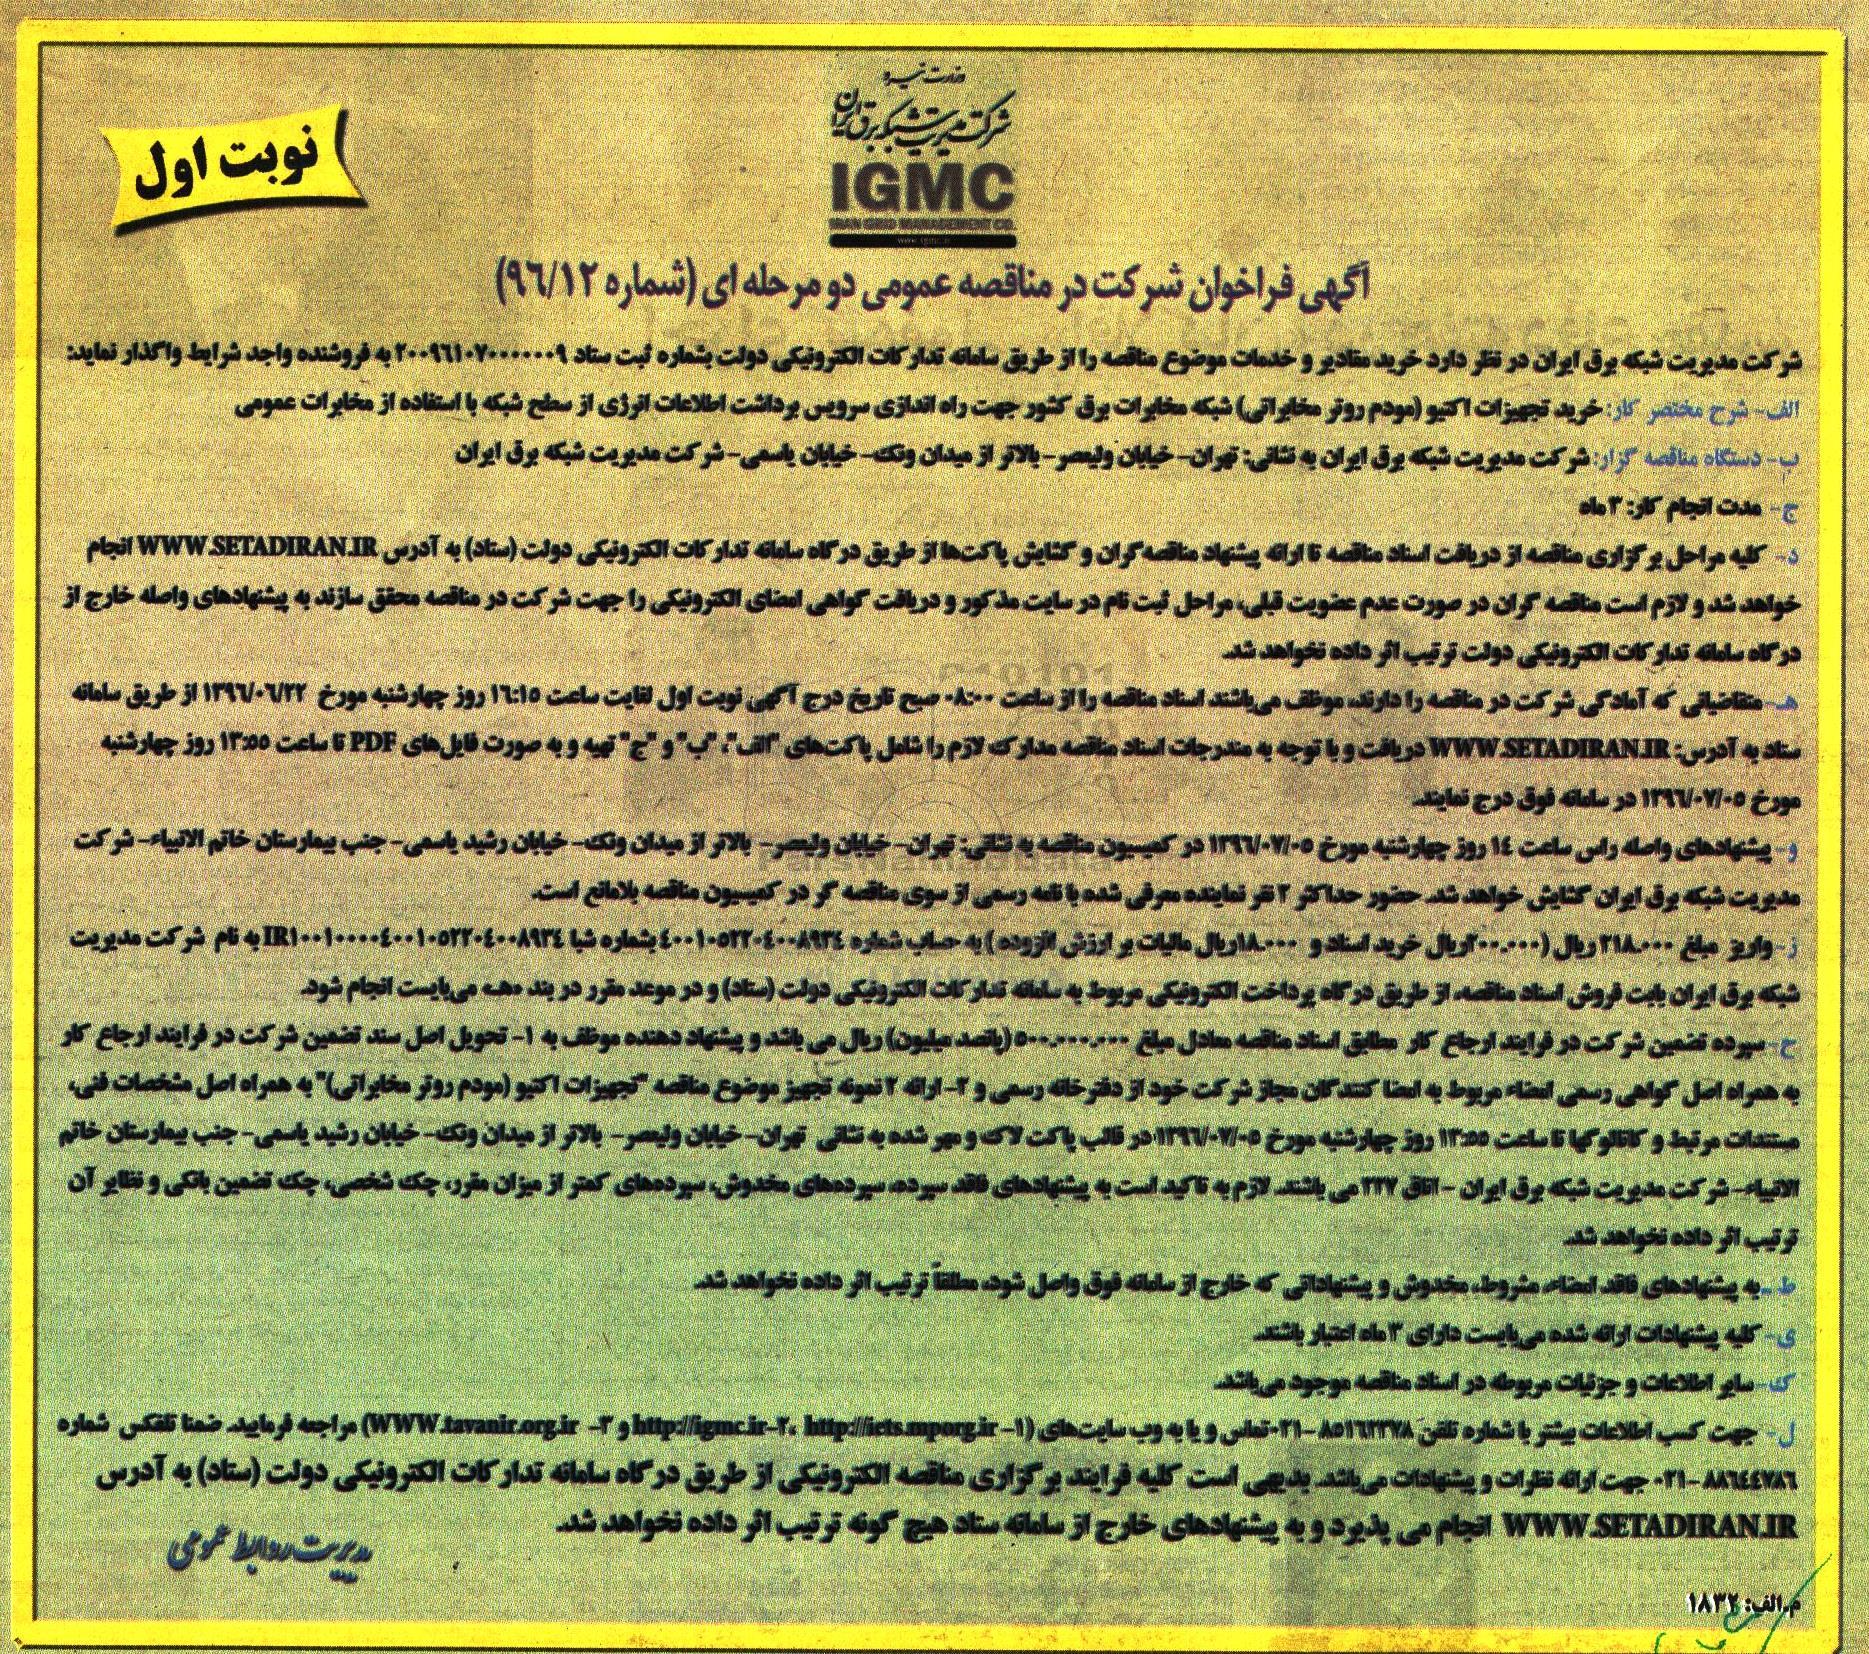 وزارت نیرو
شرکت مدیریت شبکه برق ایران
IGMC
IRAN GRID MANAGEMENT CO.
www.igmc.ir
نوبت اول
آگهی فراخوان شرکت در مناقصه عمومی دو مرحله ای (شماره ۹۶/۱۲)
شرکت مدیریت شبکه برق ایران در نظر دارد خرید مقادیر و خدمات موضوع مناقصه را از طریق سامانه تدارکات الکترونیکی دولت بشماره ثبت ستاد ۲۰۰۹۶۱۰۷۰۰۰۰۰۰۹ به فروشنده واجد شرایط واگذار نماید:
الف- شرح مختصر کار: خرید تجهیزات اکتیو (مودم روتر مخابراتی) شبکه مخابرات برق کشور جهت راه اندازی سرویس برداشت اطلاعات انرژی از سطح شبکه با استفاده از مخابرات عمومی
ب- دستگاه مناقصه گزار: شرکت مدیریت شبکه برق ایران به نشانی: تهران- خیابان ولیعصر- بالاتر از میدان ونک- خیابان یاسمی- شرکت مدیریت شبکه برق ایران
ج- مدت انجام کار: ۳ ماه
د- کلیه مراحل برگزاری مناقصه از دریافت اسناد مناقصه تا ارائه پیشنهاد مناقصه‌گران و گشایش پاکت‌ها از طریق درگاه سامانه تدارکات الکترونیکی دولت (ستاد) به آدرس WWW.SETADIRAN.IR انجام
خواهد شد و لازم است مناقصه گران در صورت عدم عضویت قبلی، مراحل ثبت نام در سایت مذکور و دریافت گواهی امضای الکترونیکی را جهت شرکت در مناقصه محقق سازند به پیشنهادهای واصله خارج از
درگاه سامانه تدارکات الکترونیکی دولت ترتیب اثر داده نخواهد شد.
هـ- متقاضیانی که آمادگی شرکت در مناقصه را دارند، موظف می‌باشند اسناد مناقصه را از ساعت ۰۸:۰۰ صبح تاریخ درج آگهی نوبت اول لغایت ساعت ۱۶:۱۵ روز چهارشنبه مورخ ۱۳۹۶/۰۶/۲۲ از طریق سامانه
ستاد به آدرس: WWW.SETADIRAN.IR دریافت و با توجه به مندرجات اسناد مناقصه مدارک لازم را شامل پاکت‌های "الف"، "ب" و "ج" تهیه و به صورت فایل‌های PDF تا ساعت ۱۳:۵۵ روز چهارشنبه
مورخ ۱۳۹۶/۰۷/۰۵ در سامانه فوق درج نمایند.
و- پیشنهادهای واصله راس ساعت ۱۴ روز چهارشنبه مورخ ۱۳۹۶/۰۷/۰۵ در کمیسیون مناقصه به نشانی: تهران- خیابان ولیعصر- بالاتر از میدان ونک- خیابان رشید یاسمی- جنب بیمارستان خاتم الانبیاء- شرکت
مدیریت شبکه برق ایران گشایش خواهد شد. حضور حداکثر ۲ نفر نماینده معرفی شده با نامه رسمی از سوی مناقصه گر در کمیسیون مناقصه بلامانع است.
ز- واریز مبلغ ۲۱۸.۰۰۰ ریال (۲۰۰.۰۰۰ ریال خرید اسناد و ۱۸.۰۰۰ ریال مالیات بر ارزش افزوده) به حساب شماره ۴۰۰۱۰۵۲۲۰۴۰۰۸۹۳۴ بشماره شبا IR۱۰۰۱۰۰۰۰۴۰۰۱۰۵۲۲۰۴۰۰۸۹۳۴ به نام شرکت مدیریت
شبکه برق ایران بابت فروش اسناد مناقصه، از طریق درگاه پرداخت الکترونیکی مربوط به سامانه تدارکات الکترونیکی دولت (ستاد) و در موعد مقرر در بند «هـ» می‌بایست انجام شود.
ح- سپرده تضمین شرکت در فرایند ارجاع کار مطابق اسناد مناقصه معادل مبلغ ۵۰۰.۰۰۰.۰۰۰ (پانصد میلیون) ریال می باشد و پیشنهاد دهنده موظف به ۱- تحویل اصل سند تضمین شرکت در فرایند ارجاع کار
به همراه اصل گواهی رسمی امضاء مربوط به امضا کنندگان مجاز شرکت خود از دفترخانه رسمی و ۲- ارائه ۲ نمونه تجهیز موضوع مناقصه "تجهیزات اکتیو (مودم روتر مخابراتی)" به همراه اصل مشخصات فنی،
مستندات مرتبط و کاتالوگها تا ساعت ۱۳:۵۵ روز چهارشنبه مورخ ۱۳۹۶/۰۷/۰۵ در قالب پاکت لاک و مهر شده به نشانی تهران- خیابان ولیعصر- بالاتر از میدان ونک- خیابان رشید یاسمی- جنب بیمارستان خاتم
الانبیاء- شرکت مدیریت شبکه برق ایران - اتاق ۲۲۷ می باشند. لازم به تاکید است به پیشنهادهای فاقد سپرده، سپرده‌های مخدوش، سپرده‌های کمتر از میزان مقرر، چک شخصی، چک تضمین بانکی و نظایر آن
ترتیب اثر داده نخواهد شد.
ط- به پیشنهادهای فاقد امضاء، مشروط، مخدوش و پیشنهاداتی که خارج از سامانه فوق واصل شود، مطلقاً ترتیب اثر داده نخواهد شد.
ی- کلیه پیشنهادات ارائه شده می‌بایست دارای ۳ ماه اعتبار باشند.
ک- سایر اطلاعات و جزئیات مربوطه در اسناد مناقصه موجود می‌باشد.
ل- جهت کسب اطلاعات بیشتر با شماره تلفن ۸۵۱۶۲۳۷۸-۰۲۱ تماس و یا به وب سایت‌های (۱- http://iets.mporg.ir ،۲- http://igmc.ir و ۳- WWW.tavanir.org.ir) مراجعه فرمایید. ضمنا تلفکس شماره
۸۸۶۴۴۷۸۶-۰۲۱ جهت ارائه نظرات و پیشنهادات می‌باشد. بدیهی است کلیه فرایند برگزاری مناقصه الکترونیکی از طریق درگاه سامانه تدارکات الکترونیکی دولت (ستاد) به آدرس
WWW.SETADIRAN.IR انجام می پذیرد و به پیشنهادهای خارج از سامانه ستاد هیچ گونه ترتیب اثر داده نخواهد شد.
مدیریت روابط عمومی
م.الف: ۱۸۳۲